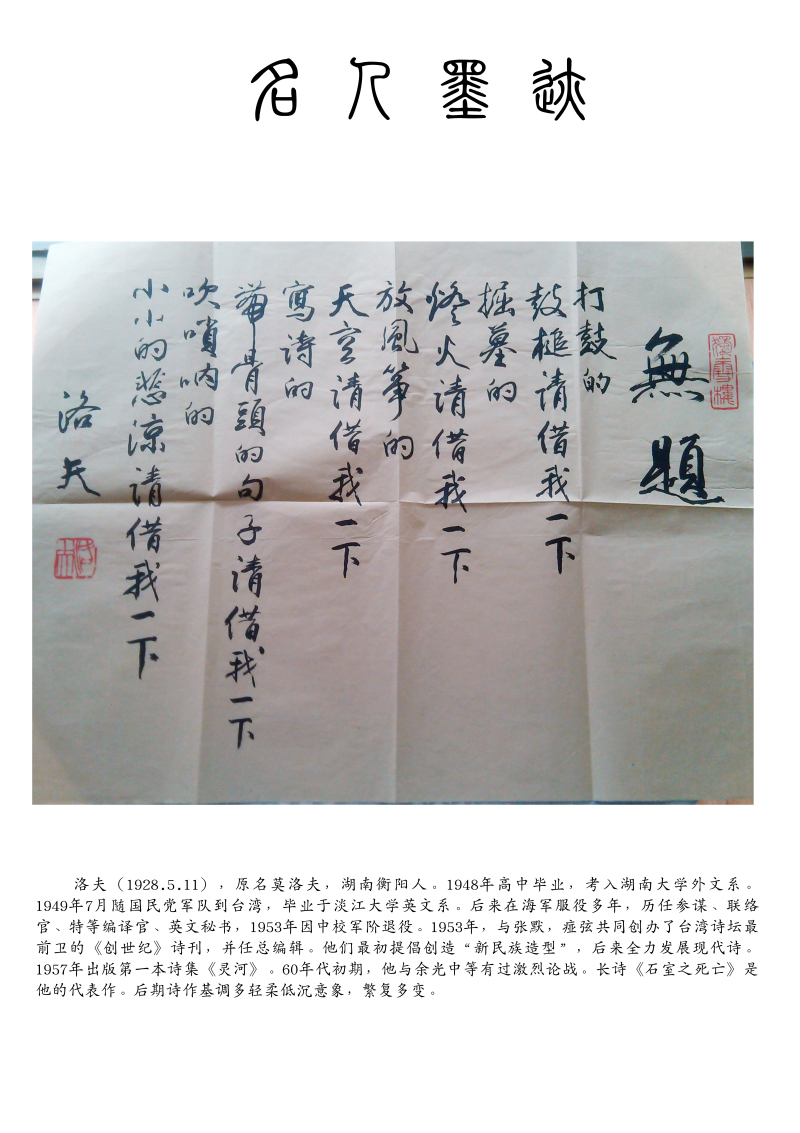 名人墨迹
無題
打鼓的
鼓槌请借我一下
掘墓的
燈火请借我一下
放風筝的
天空请借我一下
寫诗的
带骨頭的句子请借我一下
吹嗩呐的
小小的悲涼请借我一下
洛夫
洛夫（1928.5.11），原名莫洛夫，湖南衡阳人。1948年高中毕业，考入湖南大学外文系。
1949年7月随国民党军队到台湾，毕业于淡江大学英文系。后来在海军服役多年，历任参谋、联络
官、特等编译官、英文秘书，1953年因中校军阶退役。1953年，与张默，痖弦共同创办了台湾诗坛最
前卫的《创世纪》诗刊，并任总编辑。他们最初提倡创造“新民族造型”，后来全力发展现代诗。
1957年出版第一本诗集《灵河》。60年代初期，他与余光中等有过激烈论战。长诗《石室之死亡》是
他的代表作。后期诗作基调多轻柔低沉意象，繁复多变。